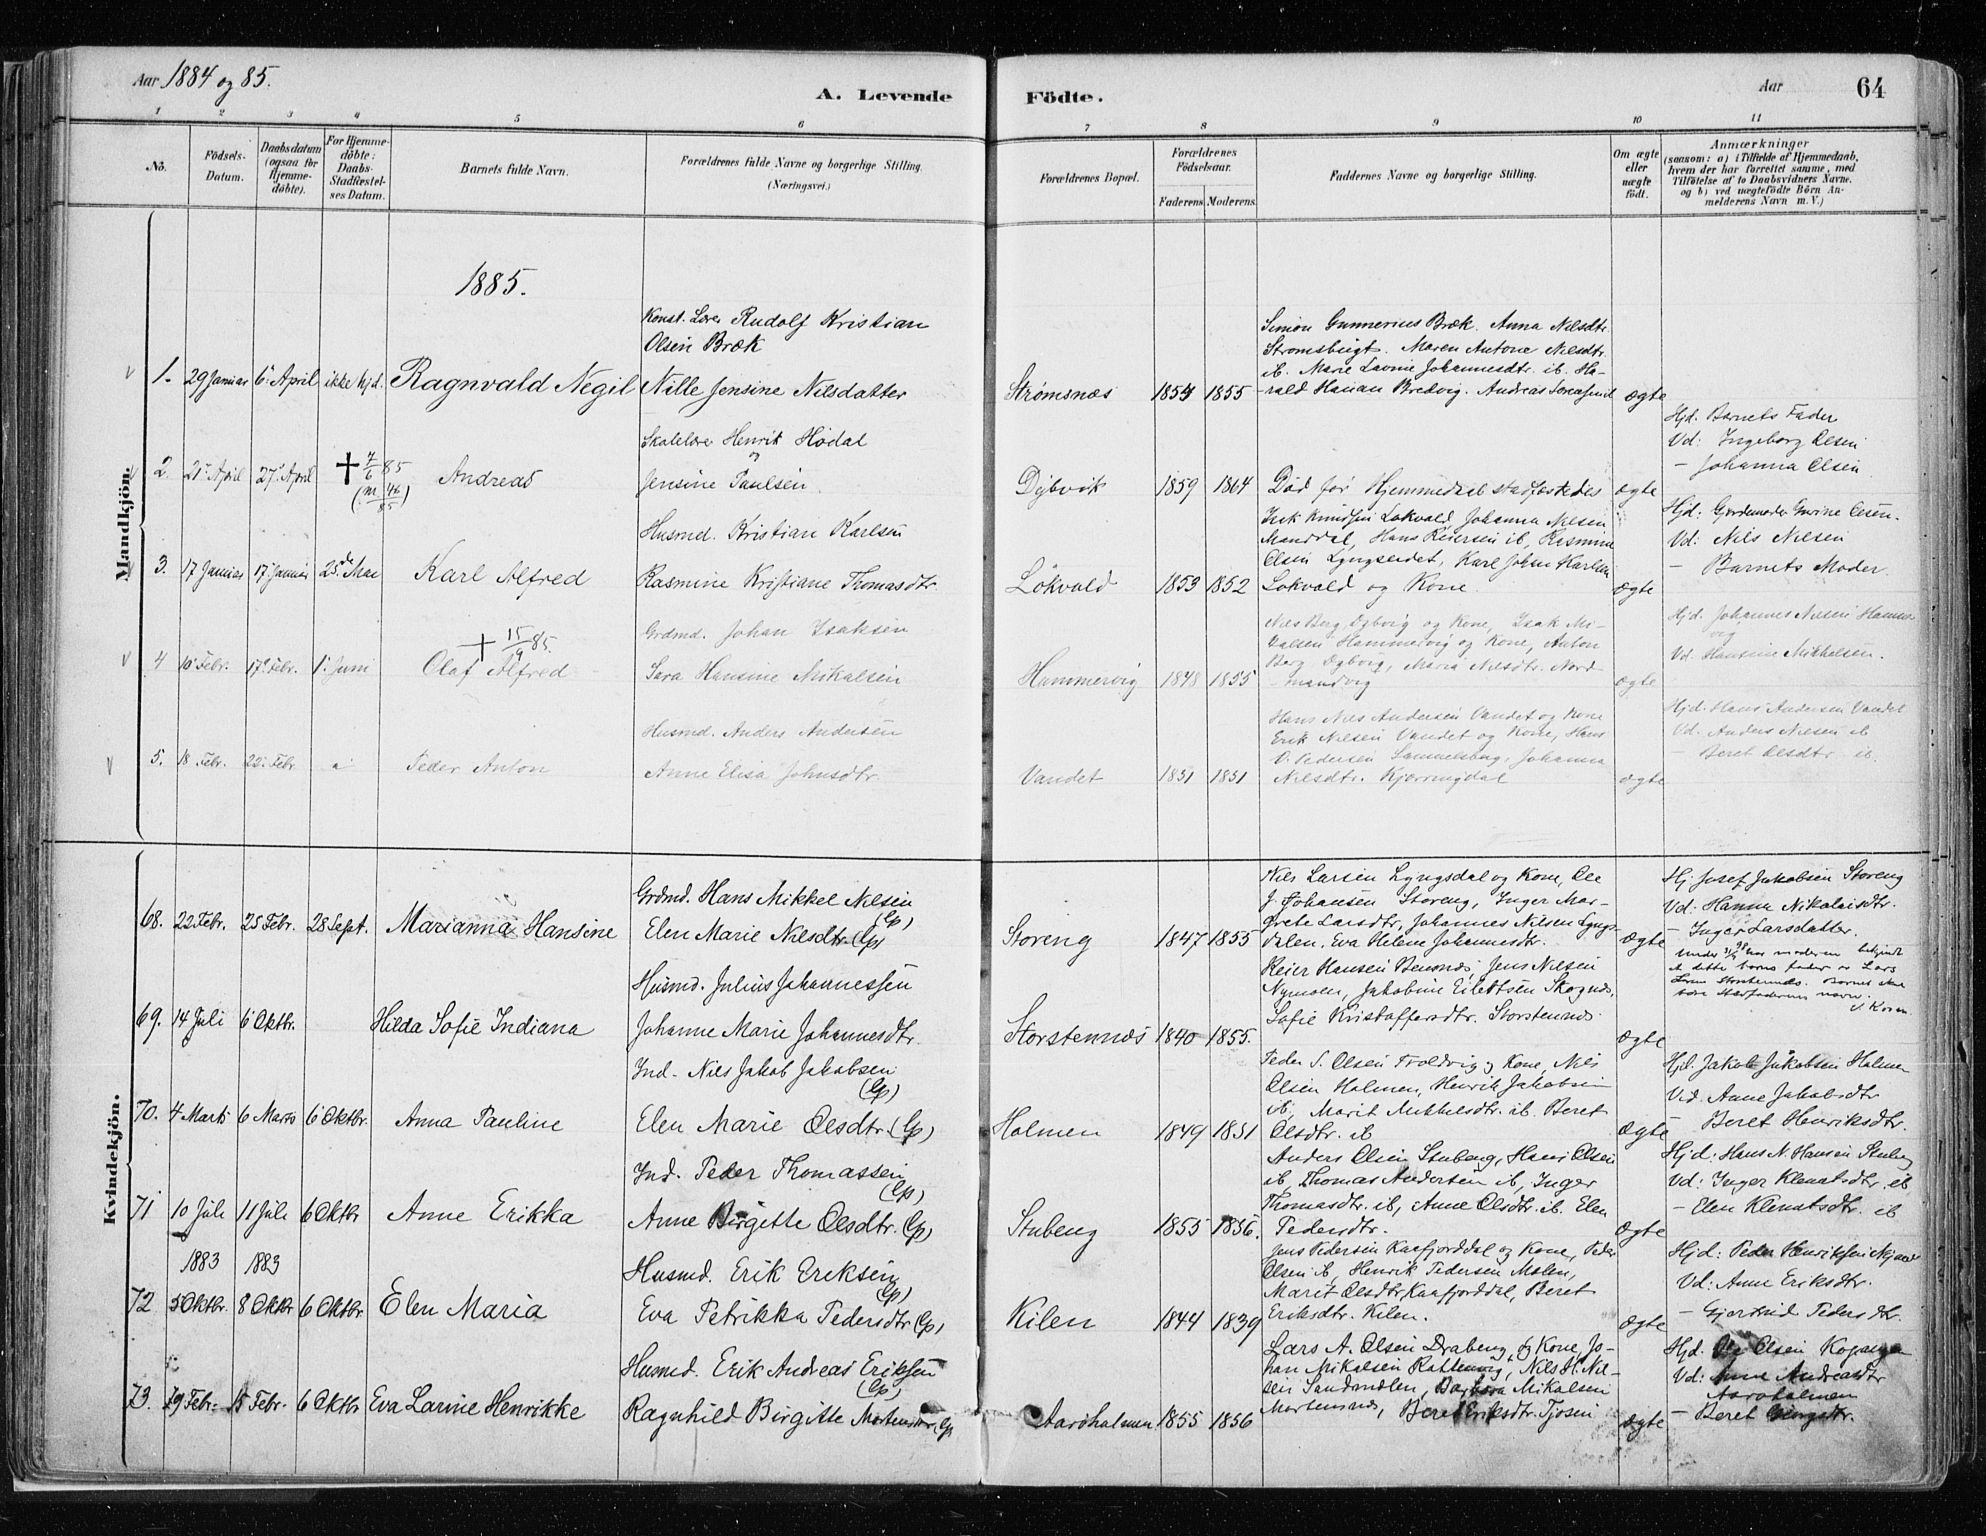 Aar 1884 og 85.
A. Levende Födte.
Aar 64
1 2 3 4 5 6 7 8 9 10 11
No.
Födsels-Datum.
Daabsdatum (ogsaa for Hjemme-döbte).
For Hjemme-döbte: Daabs-Stadfæstel-ses Datum.
Barnets fulde Navn.
Forældrenes fulde Navne og borgerlige Stilling.
(Næringsvei.)
Forældrenes Bopæl.
Forældrenes Födselsaar.
Faderens. Moderens.
Faddernes Navne og borgerlige Stilling.
Om ægte eller uægte födt.
Anmærkninger
(saasom: a) i Tilfælde af Hjemmedaab,
hvem der har forrettet samme, med
Tilföielse af to Daabsvidners Navne.
og b) ved uægtefödte Börn An-
melderens Navn m. V.)
Mandkjön.
1885.
Konst. Lærer Rudolf Kristian
Olsen Bræk
1. 29 Januar 6 April ikke hjd. Ragnvald Negil Nille Jensine Nilsdatter
Strømsnæs 1854 1855
Simon Gunnerius Bræk. Anna Nilsdtr.
Strømsbugt. Maren Antone Nilsdtr.
ib. Marie Lavine Johannesdtr. ib. Ha-
rald Hanan Bredvig. Andreas
ægte
Skolelærer Henrik Hødal
og
2. 21 April 27 April † 7/6 85 Andreas
Jensine Paulsen.
Dybvik 1859 1864 Død før Hjemmedaab stadfæstedes ægte
Hjd. Barnets Fader
Vd: Ingeborg Olsen
- Johanna Olsen
Husmd. Kristian Karlsen
3. 17 Januar 17 Januar 25d Mai Karl Alfred Rasmine Kristiane Thomasdtr.
Løkvald 1853 1852
Isak Knudsen Løkvald, Johanna Nilsen
Manddal, Hans Reiersen ib, Rasmine
Olsen Lyngseidet, Karl Johan Karlsen
Løkvald og Kone.
ægte
Hjd: Gjordemoder Olsen.
Vd: Nils Nilsen
- Barnets Moder.
Grdmd. Johan Isaksen
† 15/9 85.
4 10 Febr. 17 Febr. 1 Juni Olaf Alfred Sara Hansine Mikalsen
Hammervig 1848 1855
Nils Berg Dybvig og Kone, Isak Mi-
kalsen Hammervig og Kone, Anton
Berg Dybvig, Maria Nilsdtr. Nord-
mandvig
ægte
Hjd. Johannes Nilsen Hammer-
vig
Vd. Hansine Mikkelsen.
Husmd. Anders Andersen
5. 18 Febr. 22 Febr. Peder Anton Anne Elisa Johnsdtr.
Vandet 1851 1851
Hans Nils Andersen Vandet og Kone
Erik Nilsen Vandet og Kone, Hans
O. Pedersen Sammelsberg, Johanna
Nilsdtr. Kjerringdal
ægte
Hjd. Hans Andersen Vandet
Vd. Anders Nilsen ib
- Beret Olsdtr ib.
Kvindekjön.
Grdmd. Hans Mikkel Nilsen
(Lp)
68. 22 Febr. 25 Febr. 28 Sept. Marianna Hansine Elen Marie Nilsdtr (Lp)
Storeng 1847 1855
Nils Larsen Lyngsdal og Kone, Ole
J. Johansen Storeng, Inger Mar-
grete Larsdtr, Johannes Nilsen Lyngs-
dalen. Eva Helene Johannesdtr.
ægte
Hj. Josef Jakobsen Storeng
Vd: Hanna Nikolaisdtr.
- Inger Larsdatter.
Husmd. Julius Johannessen
69. 14 Juli 6 Oktbr. Hilda Sofie Indiana Johanne Marie Johannesdtr.
Storstennæs 1840 1855.
Reier Hansen Bensnæs, Jens Nilsen
Nymoen, Jakobine Eilertsen Skognæs,
Sofie Kristoffersdtr. Storstennæs.
ægte
har moderen bekjendt
at dette barns fader er Lars
Barnet skal
bære Stedfaderens navn.
Ind. Nils Jakob Jakobsen
(Lp)
70. 4 Marts 6 Marts 6 Oktbr. Anna Pauline Elen Marie Olsdtr (Lp)
Holmen 1849 1851
Peder S. Olsen Troldvig og Kone, Nils
Olsen Holmen, Henrik Jakobsen
ib, Marit Mikkelsdtr. ib. Beret
Olsdtr. ib
ægte
Hjd. Jakob Jakobsen Holmen
Vid. Anne Jakobsdtr
- Beret Henriksdtr.
Ind. Peder Thomassen
(Lp)
71 10 Juli 11 Juli 6 Oktbr Anne Erikka Anne Birgitte Olsdtr. (Lp)
Stubeng 1855 1856.
Anders Olsen Stubeng, Hans Olsen
ib, Thomas Andersen ib, Inger
Thomasdtr. ib, Anne Olsdtr. ib. Elen
Pedersdtr.
ægte
Hjd: Hans N. Hansen Stubeng
Vd: Inger Klemetsdtr. ib
- Elen Klemetsdtr. ib
1883 1883
Husmd. Erik Eriksen
(Lp)
72 5 Oktbr. 8 Oktbr 6 Oktbr. Elen Maria Eva Petrikka Pedersdtr (Lp)
Kilen 1844 1839
Jens Pedersen Kaafjorddal og Kone, Peder
Olsen ib, Henrik Pedersen Molen,
Marit Olsdtr Kaafjorddal, Beret
Eriksdtr. Kilen.
ægte
Hjd: Peder Henriksen
Vd: Anne Eriksdtr.
- Gjertrud Pedersdtr.
Husmd. Erik Andreas Eriksen
(Lp)
73. 29 Febr. 15 Febr. 6 Oktbr Eva Larine Henrikke Ragnhild Birgitte Mortensdtr. (Lp)
Aarøholmen 1855 1856
Lars A. Olsen Drabeng og Kone, Jo-
han Mikalsen Rottenvig, Nils H. Nil-
sen Sandmælen, Barbara Mikalsen
Mortensnæs, Beret Eriksdtr. Tjosen
ægte
Hjd. Ole Olsen Kopangen
Vd: Anne Andreasdtr
Aarøholmen
- Beret